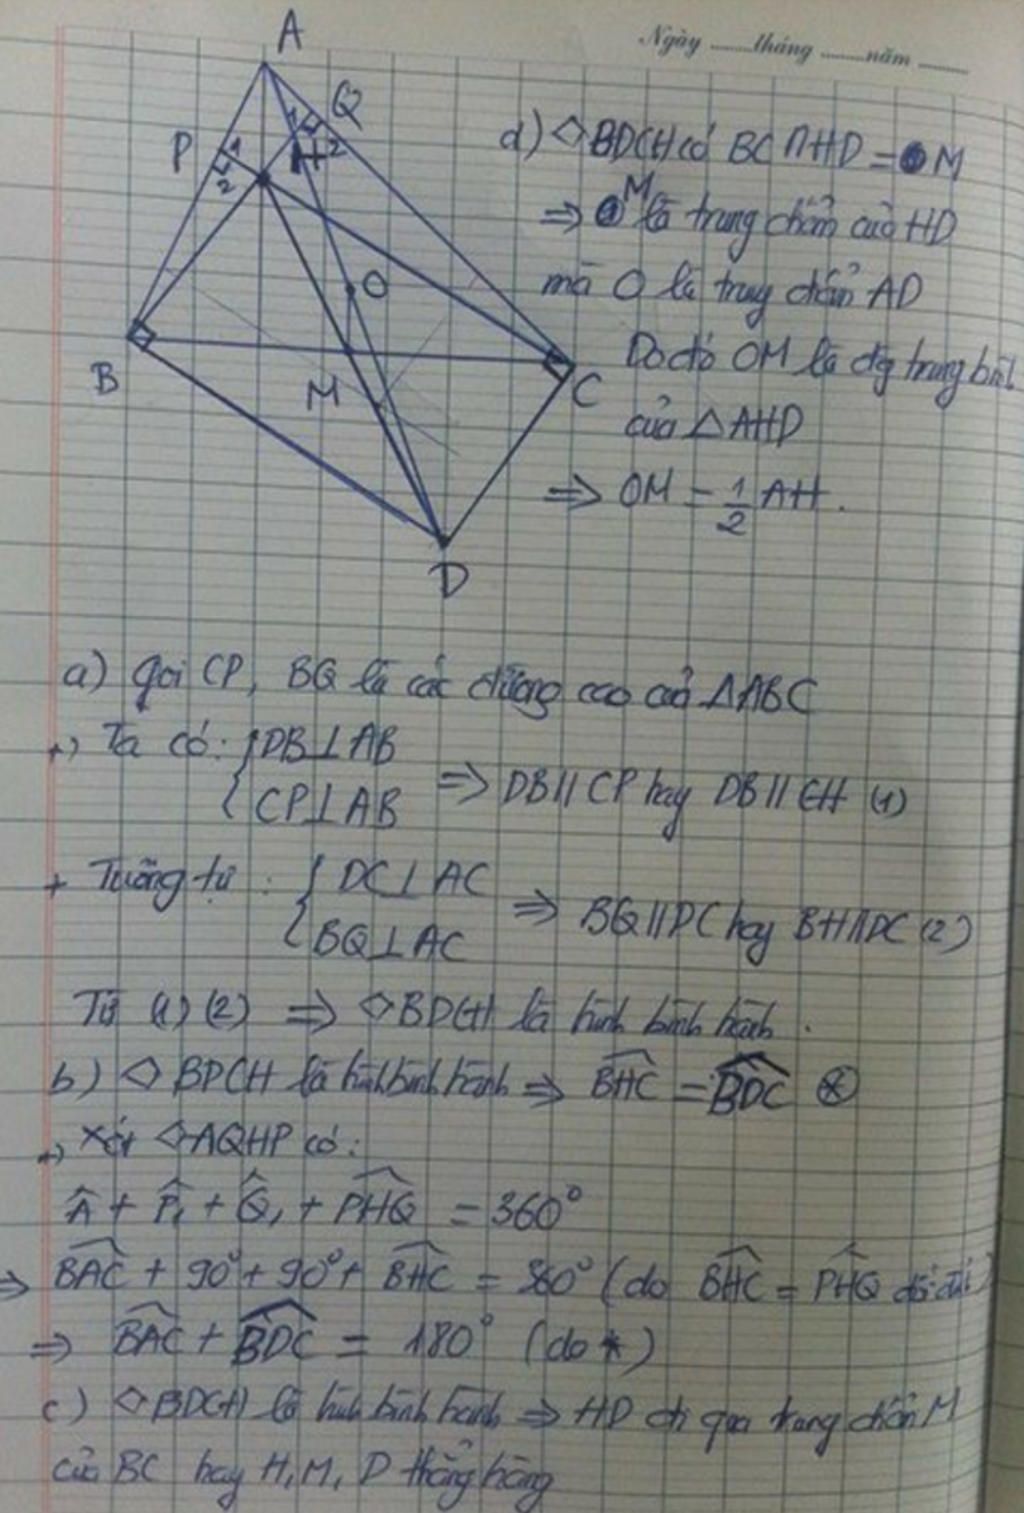 Ngày ........tháng ........năm ........
A
Q
P
1
1
2
H
2
O
B
M
C
D
d) ◇BDCH có BC ∩ HD = M
⇒ M là trung điểm của HD
mà O là trung điểm AD
Do đó OM là đg trung bình
của △AHD
⇒ OM = 1/2 AH.
a) Gọi CP, BQ là các đường cao của △ABC
+, Ta có: { DB⊥AB
CP⊥AB ⇒ DB // CP hay DB // CH (1)
+ Tương tự : { DC⊥AC
BQ⊥AC ⇒ BQ // DC hay BH // DC (2)
Từ (1) (2) ⇒ ◇BDCH là hình bình hành.
b) ◇BDCH là hình bình hành ⇒ BHC = BDC (*)
+, Xét ◇AQHP có:
Â + P̂₁ + Q̂₁ + PHQ = 360°
⇒ BAC + 90° + 90° + BHC = 360° (do BHC = PHQ đối đỉnh)
⇒ BAC + BDC = 180° (do *)
c) ◇BDCH là hình bình hành ⇒ HD đi qua trung điểm M
của BC hay H, M, D thẳng hàng